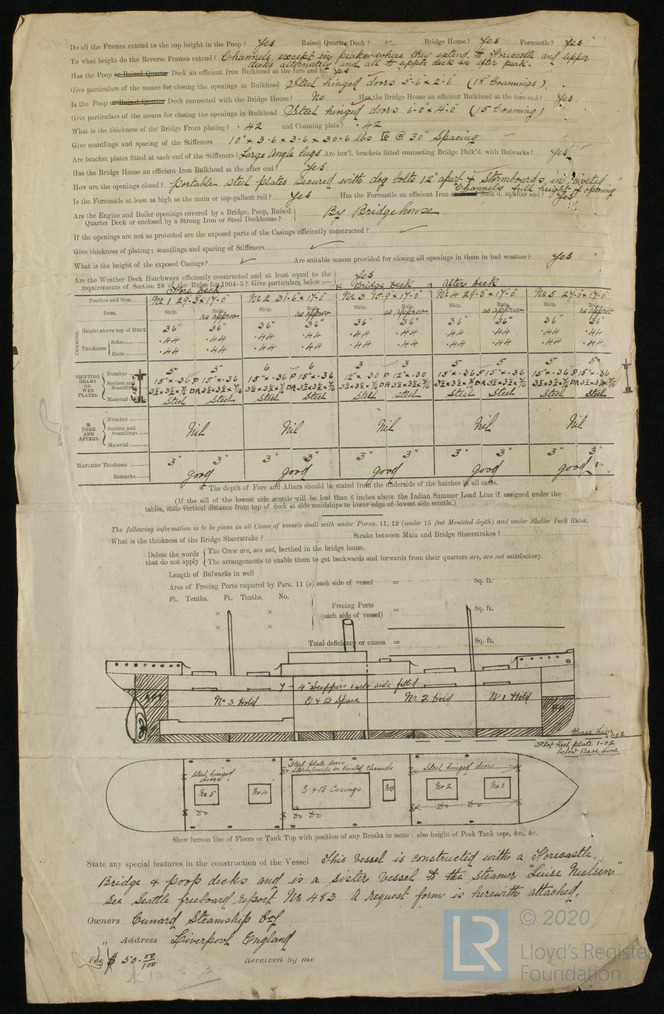 Do all the Frames extend to the top height in the Poop? Yes Raised Quarter Deck? Bridge House? Yes Forecastle? Yes
To what height do the Reverse Frames extend? Channels except in peaks where they extend to Forecastle and upper
decks alternately and all to upper deck in after peak.
Has the Poop or Raised Quarter Deck an efficient Iron Bulkhead at the fore end? Yes
Give particulars of the means for closing the openings in Bulkhead Steel hinged doors 5-6 x 2-6 (18" Coamings)
Is the Poop or Raised Quarter Deck connected with the Bridge House? No Has the Bridge House an efficient Iron Bulkhead at the fore end? Yes
Give particulars of the means for closing the openings in Bulkhead Steel hinged doors 6-0 x 4-0 (15" Coaming)
What is the thickness of the Bridge Front plating? .42 and Coaming plate? .42
Give scantlings and spacing of the Stiffeners 10" x 3.6 x 3.6 x 30.6 lbs @ 30" Spacing
Are bracket plates fitted at each end of the Stiffeners? Large Angle lugs Are hor'l. brackets fitted connecting Bridge Bulk'd. with Bulwarks? Yes
Has the Bridge House an efficient Iron Bulkhead at the after end? Yes
How are the openings closed? Portable steel plates secured with dog bolts 12" apart & Stormboards in riveted
Channels full height of opening
Is the Forecastle at least as high as the main or top-gallant rail? Yes Has the Forecastle an efficient Iron Bulk'd. at after end? Yes
Are the Engine and Boiler openings covered by a Bridge, Poop, Raised
Quarter Deck or enclosed by a Strong Iron or Steel Deckhouse? By Bridge house
If the openings are not so protected are the exposed parts of the Casings efficiently constructed?
Give thickness of plating; scantlings and spacing of Stiffeners
What is the height of the exposed Casings? Are suitable means provided for closing all openings in them in bad weather? Yes
Are the Weather Deck Hatchways efficiently constructed and at least equal to the
requirements of Section 28 of the Rules for 1904-5? Give particulars below:— Yes
Fore Deck Bridge Deck After Deck
Position and Size. No 1 29-3 x 17-0" No 2 31-6 x 17-0" No 3 15-9 x 17-0" No 4 29-3 x 17-0" No 5 27-0 x 17-0"
Item. Ship. Rule. Ship. Rule. Ship. Rule. Ship. Rule. Ship. Rule.
as approv as approv as approv as approv as approv
COAMING Height above top of Deck 36" 36" 36" 36" 36" 36" 36" 36" 36" 36"
Thickness Sides .44 .44 .44 .44 .44 .44 .44 .44 .44 .44
Ends .44 .44 .44 .44 .44 .44 .44 .44 .44 .44
SHIFTING BEAMS OR WEB PLATES. Number 5 5 6 6 3 3 5 5 5 5
Section and Scantlings 15" x .36 P 15" x .36 15" x .36 P 15" x .36 12" x .30 P 12" x .30 15" x .36 P 15" x .36 15" x .36 P 15" x .36
Material Steel Steel Steel Steel Steel Steel Steel Steel Steel Steel
FORE AND AFTERS. Number
Section and Scantlings Nil Nil Nil Nil Nil
Material
HATCHES Thickness 3" 3" 3" 3" 3" 3" 3" 3" 3" 3"
Remarks good good good good good
* The depth of Fore and Afters should be stated from the underside of the hatches in all cases.
(If the sill of the lowest side scuttle will be less than 6 inches above the Indian Summer Load Line if assigned under the
tables, state vertical distance from top of deck at side amidships to lower edge of lowest side scuttle.)
The following information is to be given in all Cases of vessels dealt with under Paras. 11, 12 (under 15 feet Moulded depth) and under Shelter Deck Rules.
What is the thickness of the Bridge Sheerstrake? Strake between Main and Bridge Sheerstrakes?
Delete the words that do not apply
The Crew are, are not, berthed in the bridge house.
The arrangements to enable them to get backwards and forwards from their quarters are, are not satisfactory.
Length of Bulwarks in well
Area of Freeing Ports required by Para. 11 (e) each side of vessel = Sq. ft.
Ft. Tenths. Ft. Tenths. No.
x Freeing Ports (each side of vessel) = Sq. ft.
x
Total deficiency or excess = Sq. ft.
7 - 4" Scuppers each side fitted
No 3 Hold E & B Space No 2 Hold No 1 Hold
APT FP
Base Line
Flat keel plate 1.02
below Base Line
Steel hinged doors Steel plate doors Stormboards in riveted channels Steel hinged doors
No 5 No 4 E & B Casings No 3 No 2 No 1
Do Do Do Do
Show hereon line of Floors or Tank Top with position of any Breaks in same: also height of Peak Tank tops, &c., &c.
State any special features in the construction of the Vessel This vessel is constructed with a Forecastle
Bridge & Poop decks and is a sister vessel to the steamer "Luise Nielsen"
See Seattle freeboard report No 483 A request form is herewith attached.
Owners Cunard Steamship Coy
Address Liverpool England
Fee $ 50.00/100 Received by me
LR © 2020
Lloyd's Register
Foundation